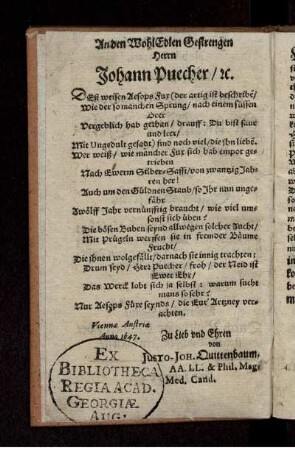 An den WohlEdlen Gestrengen
Herrn
Johann Puecher / ꝛc.
Deß weisen Aesops Fux (der artig ist beschribē)
Wie der so manchen Sprung / nach einem süssen
Beer
Vergeblich hab gethan / drauff: Du bist saur
und leer /
Mit Ungedult gesagt / sind noch viel / die ihn liebē.
Wer weiß / wie mancher Fux sich hab empor ge-
trieben
Nach Ewerm Silber-Safft / von zwantzig Jah-
ren her!
Auch um den Güldnen Staub / so Ihr nun unge-
fähr
Zwölff Jahr vernünfftig braucht / wie viel um-
sonst sich üben?
Die bösen Buben seynd allwegen solcher Zucht /
Mit Prügeln werffen sie in fremder Bäume
Frucht /
Die ihnen wolgefällt / darnach sie innig trachten:
Drum seyd / Herz Puecher / froh / der Neid ist
Ewer Ehr /
Das Werck lobt sich ja selbst: warum sucht
mans so sehr?
Nur Aesops Füxe seynds / die Eur Artzney ver-
achten.
Viennæ Austriæ
Anno 1647.
Zu Lieb und Ehren
von
Justo-Joh. Quittenbaum,
AA. LL. & Phil. Mag.
Med. Cand.
EX
BIBLIOTHECA
REGIA ACAD.
GEORGIÆ
AUG.